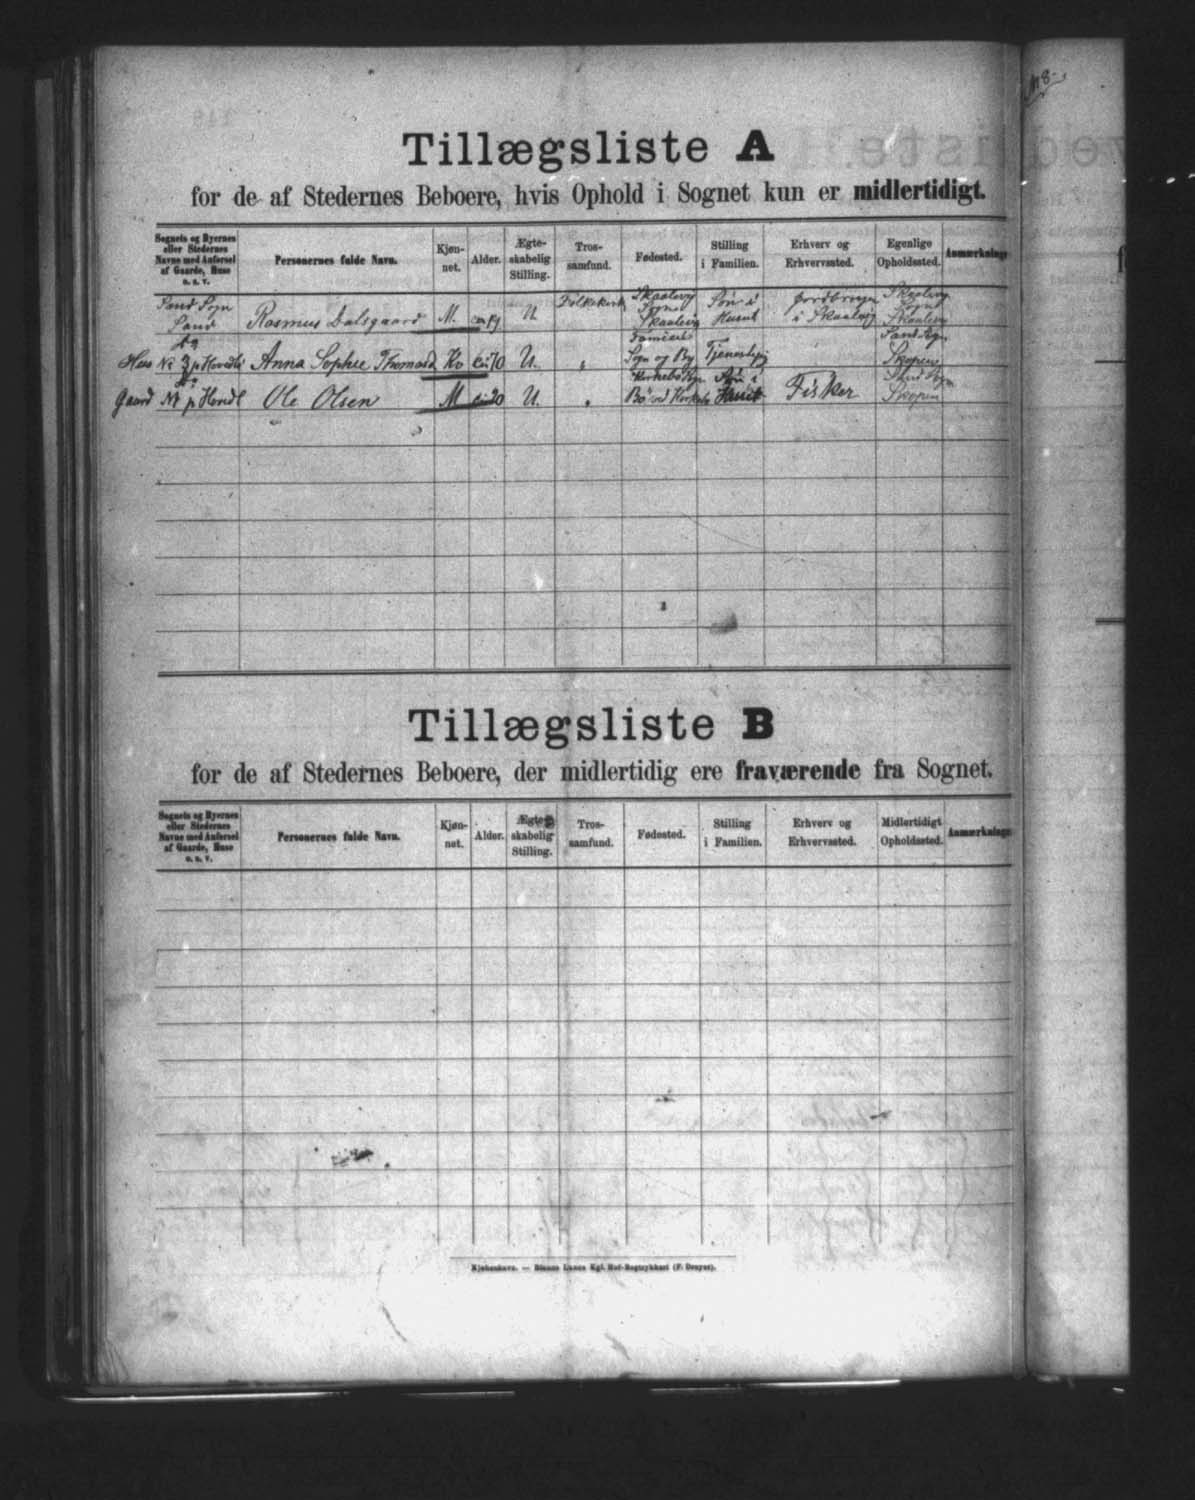 Tillægsliste A
for de af Stedernes Beboere, hvis Ophold i Sognet kun er midlertidigt.
Sognets og Byernes eller Stedernes Navne med Anførsel af Gaarde, Huse o. s. v.
Personernes fulde Navn.
Kjøn-net.
Alder.
Ægte-skabelig Stilling.
Tros-samfund.
Fødested.
Stilling i Familien.
Erhverv og Erhvervssted.
Egenlige Opholdssted.
Anmærkninge
Sand Sogn Sand Rasmus Dalsgaard M. U. Folkekirk Skaalevig Sogn Skaalevig Søn i Huset Jordbruger i Skaalvig Skaalevig Sand Skaalevig
Hus No 3 Anna Sophie Thomasd Kv 70 U. " Sogn og By Tjenestepig Sand Sogn Skopen
Gaard No Ole Olsen M 20 U. " Søn i Huset Fisker Sand Sogn Skopen
Tillægsliste B
for de af Stedernes Beboere, der midlertidig ere fraværende fra Sognet.
Sognets og Byernes eller Stedernes Navne med Anførsel af Gaarde, Huse o. s. v.
Personernes fulde Navn.
Kjøn-net.
Alder.
Ægte-skabelig Stilling.
Tros-samfund.
Fødested.
Stilling i Familien.
Erhverv og Erhvervssted.
Midlertidigt Opholdssted.
Anmærkninge
Kjøbenhavn. — Bianco Lunos Kgl. Hof-Bogtrykkeri (F. Dreyer).